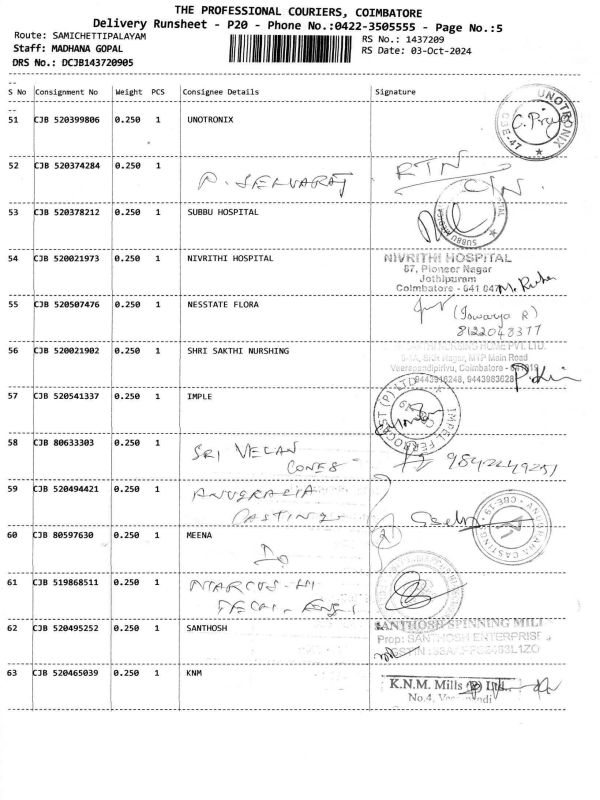 THE PROFESSIONAL COURIERS, COIMBATORE
Delivery Runsheet - P20 - Phone No.:0422-3505555 - Page No.:5
Route: SAMICHETTIPALAYAM
RS No.: 1437209
Staff: MADHANA GOPAL
RS Date: 03-Oct-2024
DRS No.: DCJB143720905
S No Consignment No Weight PCS Consignee Details Signature
51 CJB 520399806 0.250 1 UNOTRONIX
UNOTRONIX CBE-47
C. Priya
52 CJB 520374284 0.250 1
P. SELVARAJ RTN
53 CJB 520378212 0.250 1 SUBBU HOSPITAL
54 CJB 520021973 0.250 1 NIVRITHI HOSPITAL
NIVRITHI HOSPITAL
87, Pioneer Nagar
Jothipuram
Coimbatore - 641 047
55 CJB 520507476 0.250 1 NESSTATE FLORA
(Iswarya R)
8122043377
56 CJB 520021902 0.250 1 SHRI SAKTHI NURSHING
NURSING HOME PVT. LTD.
MTP Main Road
Veerapandipirivu, Coimbatore -
9443916248, 9443983628
57 CJB 520541337 0.250 1 IMPLE
58 CJB 80633303 0.250 1
SRI VELAN
CONES
9842249251
59 CJB 520494421 0.250 1
ANUGRAHA
CASTINGS
ANUGRAHA CASTINGS CBE-19
60 CJB 80597630 0.250 1 MEENA
Do
61 CJB 519868511 0.250 1
62 CJB 520495252 0.250 1 SANTHOSH
SANTHOSH SPINNING MILL
Prop: SANTHOSH ENTERPRISE
63 CJB 520465039 0.250 1 KNM
K.N.M. Mills (P) Ltd.
No.4,